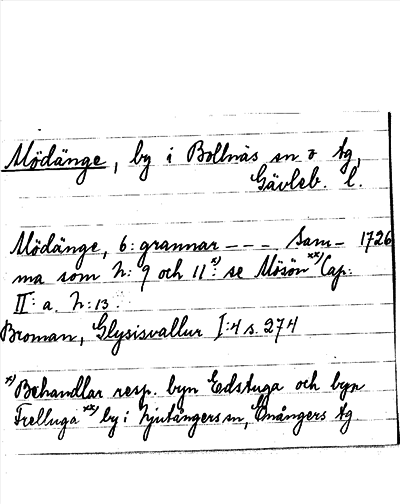 Mödänge, by i Bollnäs sn o tg,
Gävleb. l.
Mödänge, 6: grannar --- Sam- 1726
ma som N: 9 och 11 x): se Mösön xx) Cap:
II: a. N: 13.
Broman, Glysisvallur I:4 s. 274
x) Behandlar resp. byn Edstuga och byn
Freluga xx) by i Njutångers sn, Enångers tg